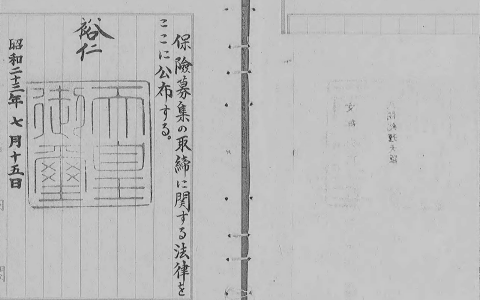 保險募集の取締に関する法律を
ここに公布する。
裕仁
天皇
御璽
昭和二十三年七月十五日